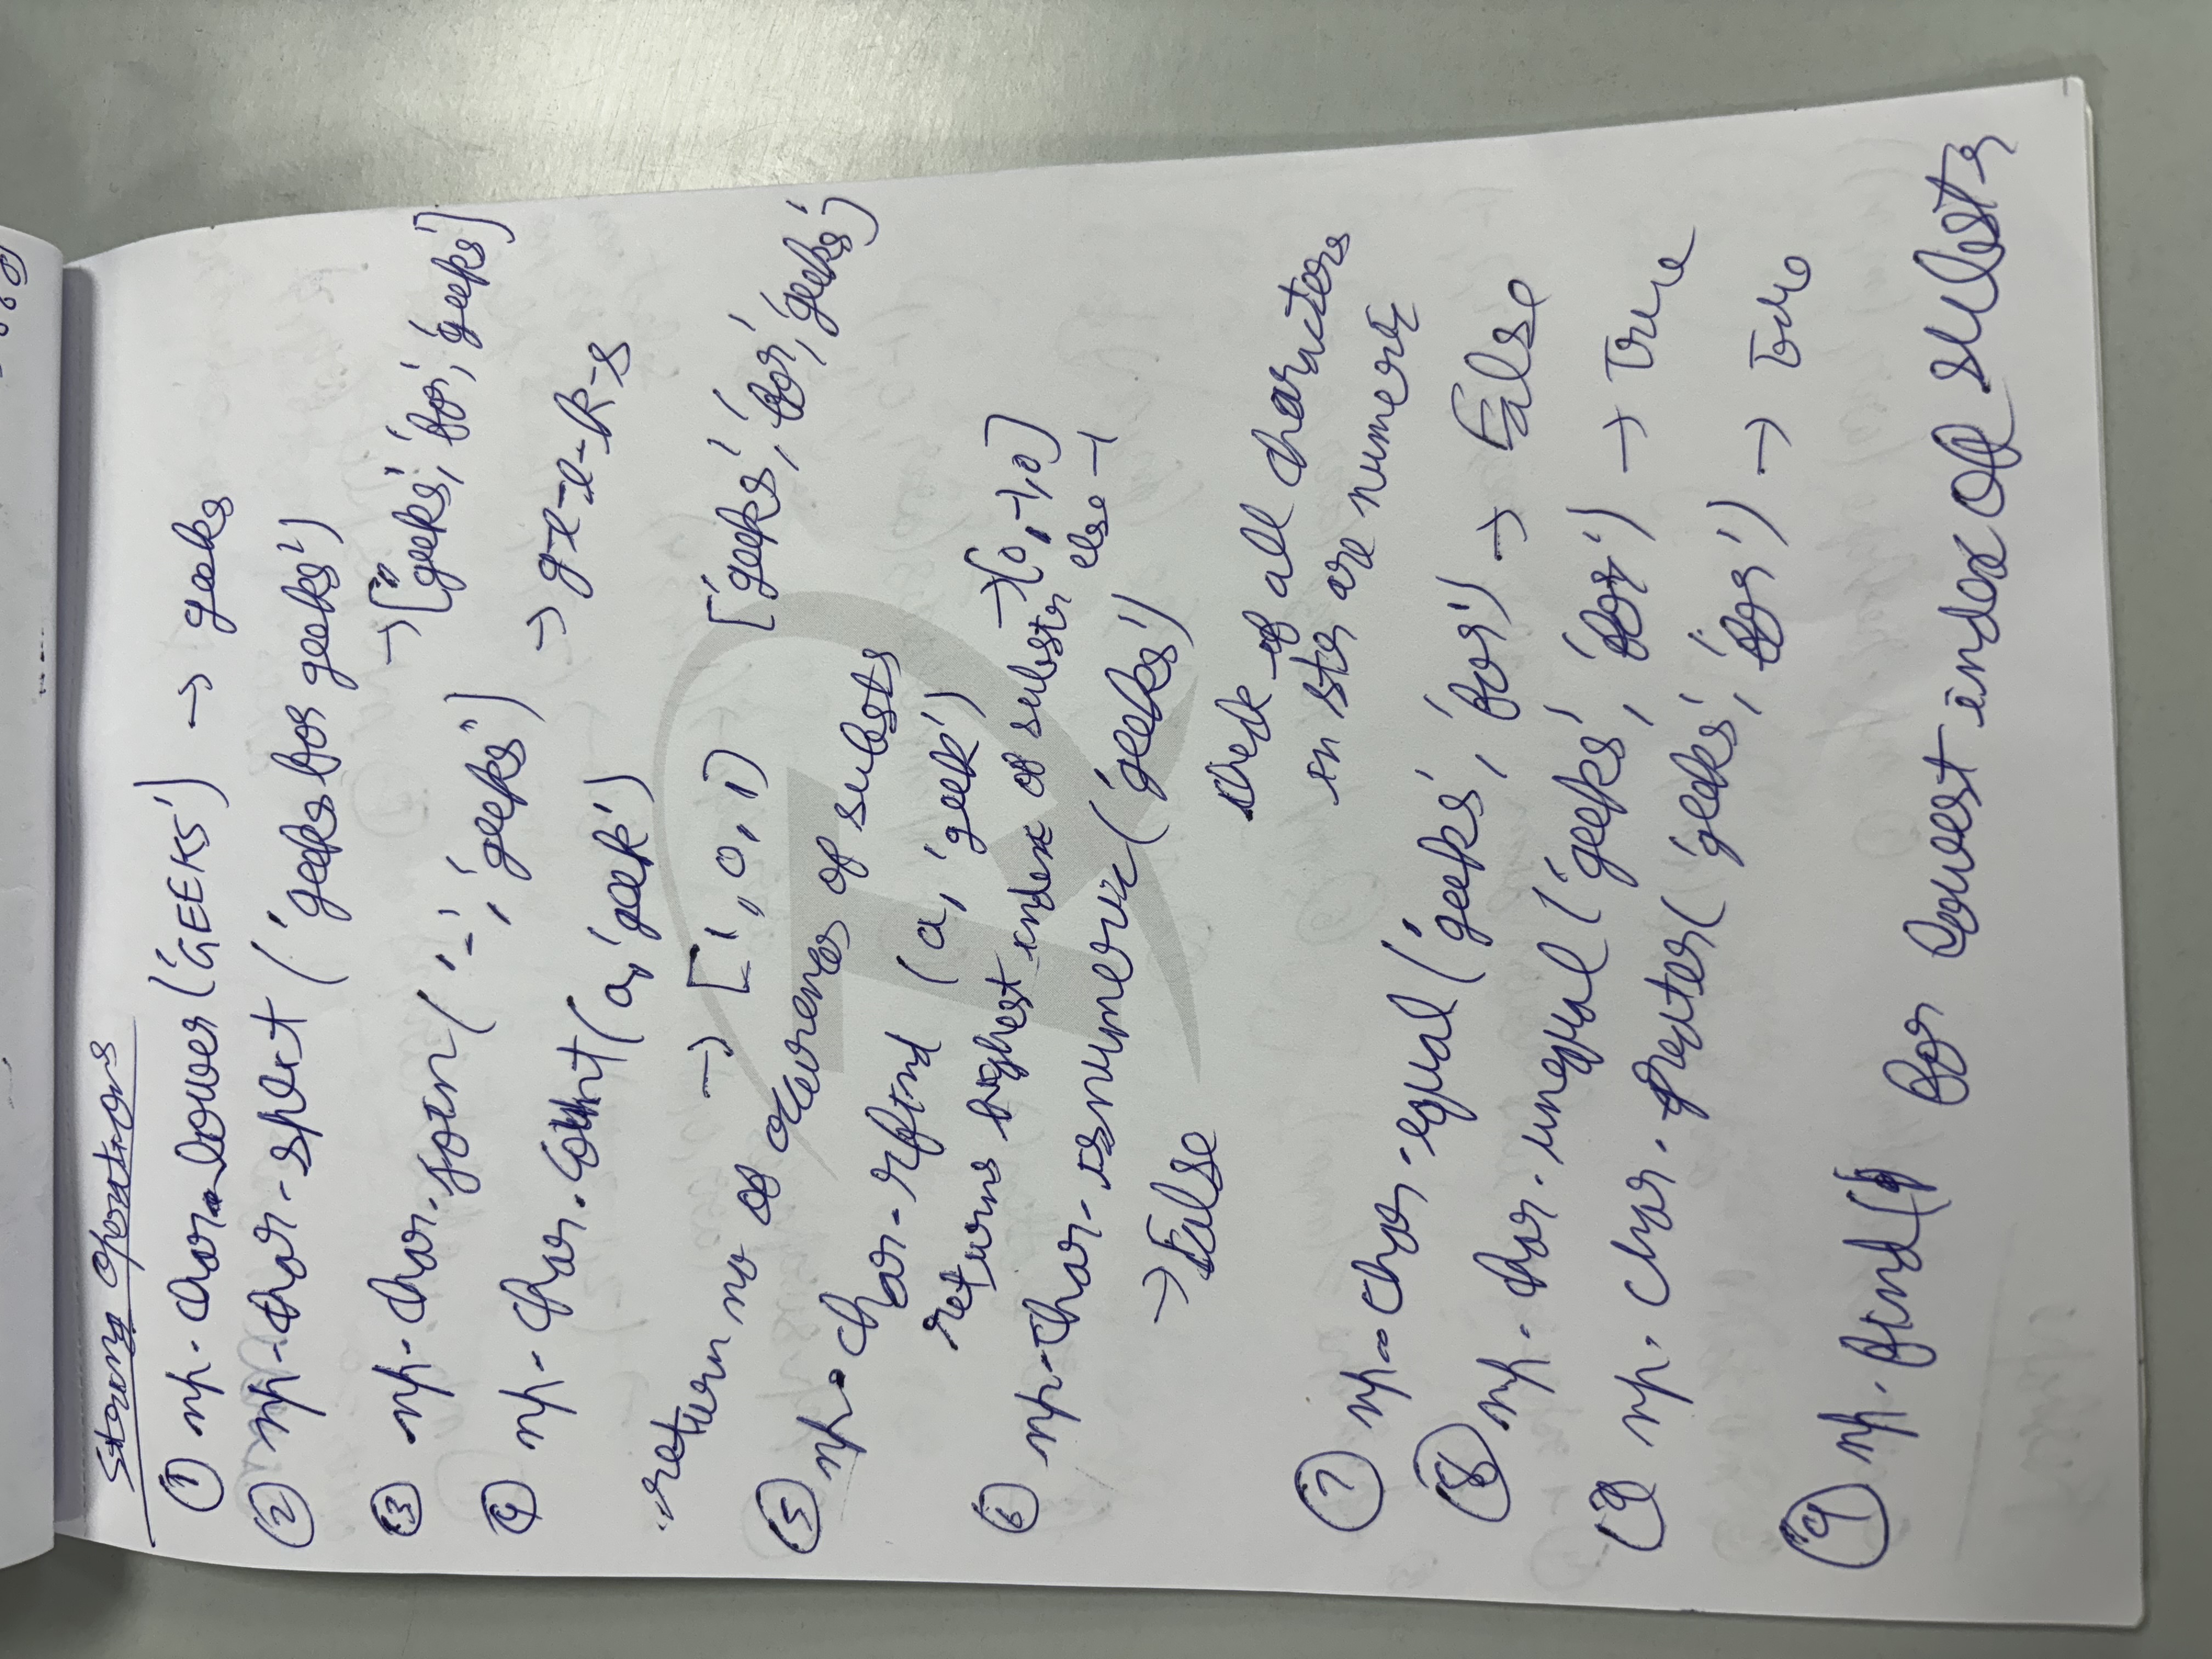 String Operations
① np.char.lower('GEEKS') → geeks
② np.char.split ('geeks for geeks')
→ ['geeks', 'for', 'geeks']
③ np.char.join('-', 'geeks')
→ g-e-e-k-s
④ np.char.count(a, 'geek')
→ [1, 0, 1] ['geeks', 'for', 'geeks']
return no of occurences of substr
⑤ np.char.rfind (a, 'geek')
→ [0, -1, 0]
returns highest index of substr else -1
⑥ np.char.isnumeric('geeks')
→ False
check if all characters
in str are numeric
⑦ np.char.equal('geeks', 'for') → False
⑧ np.char.unequal('geeks', 'for') → True
⑨ np.char.greater('geeks', 'for') → True
⑨ np.find( for lowest index of substr